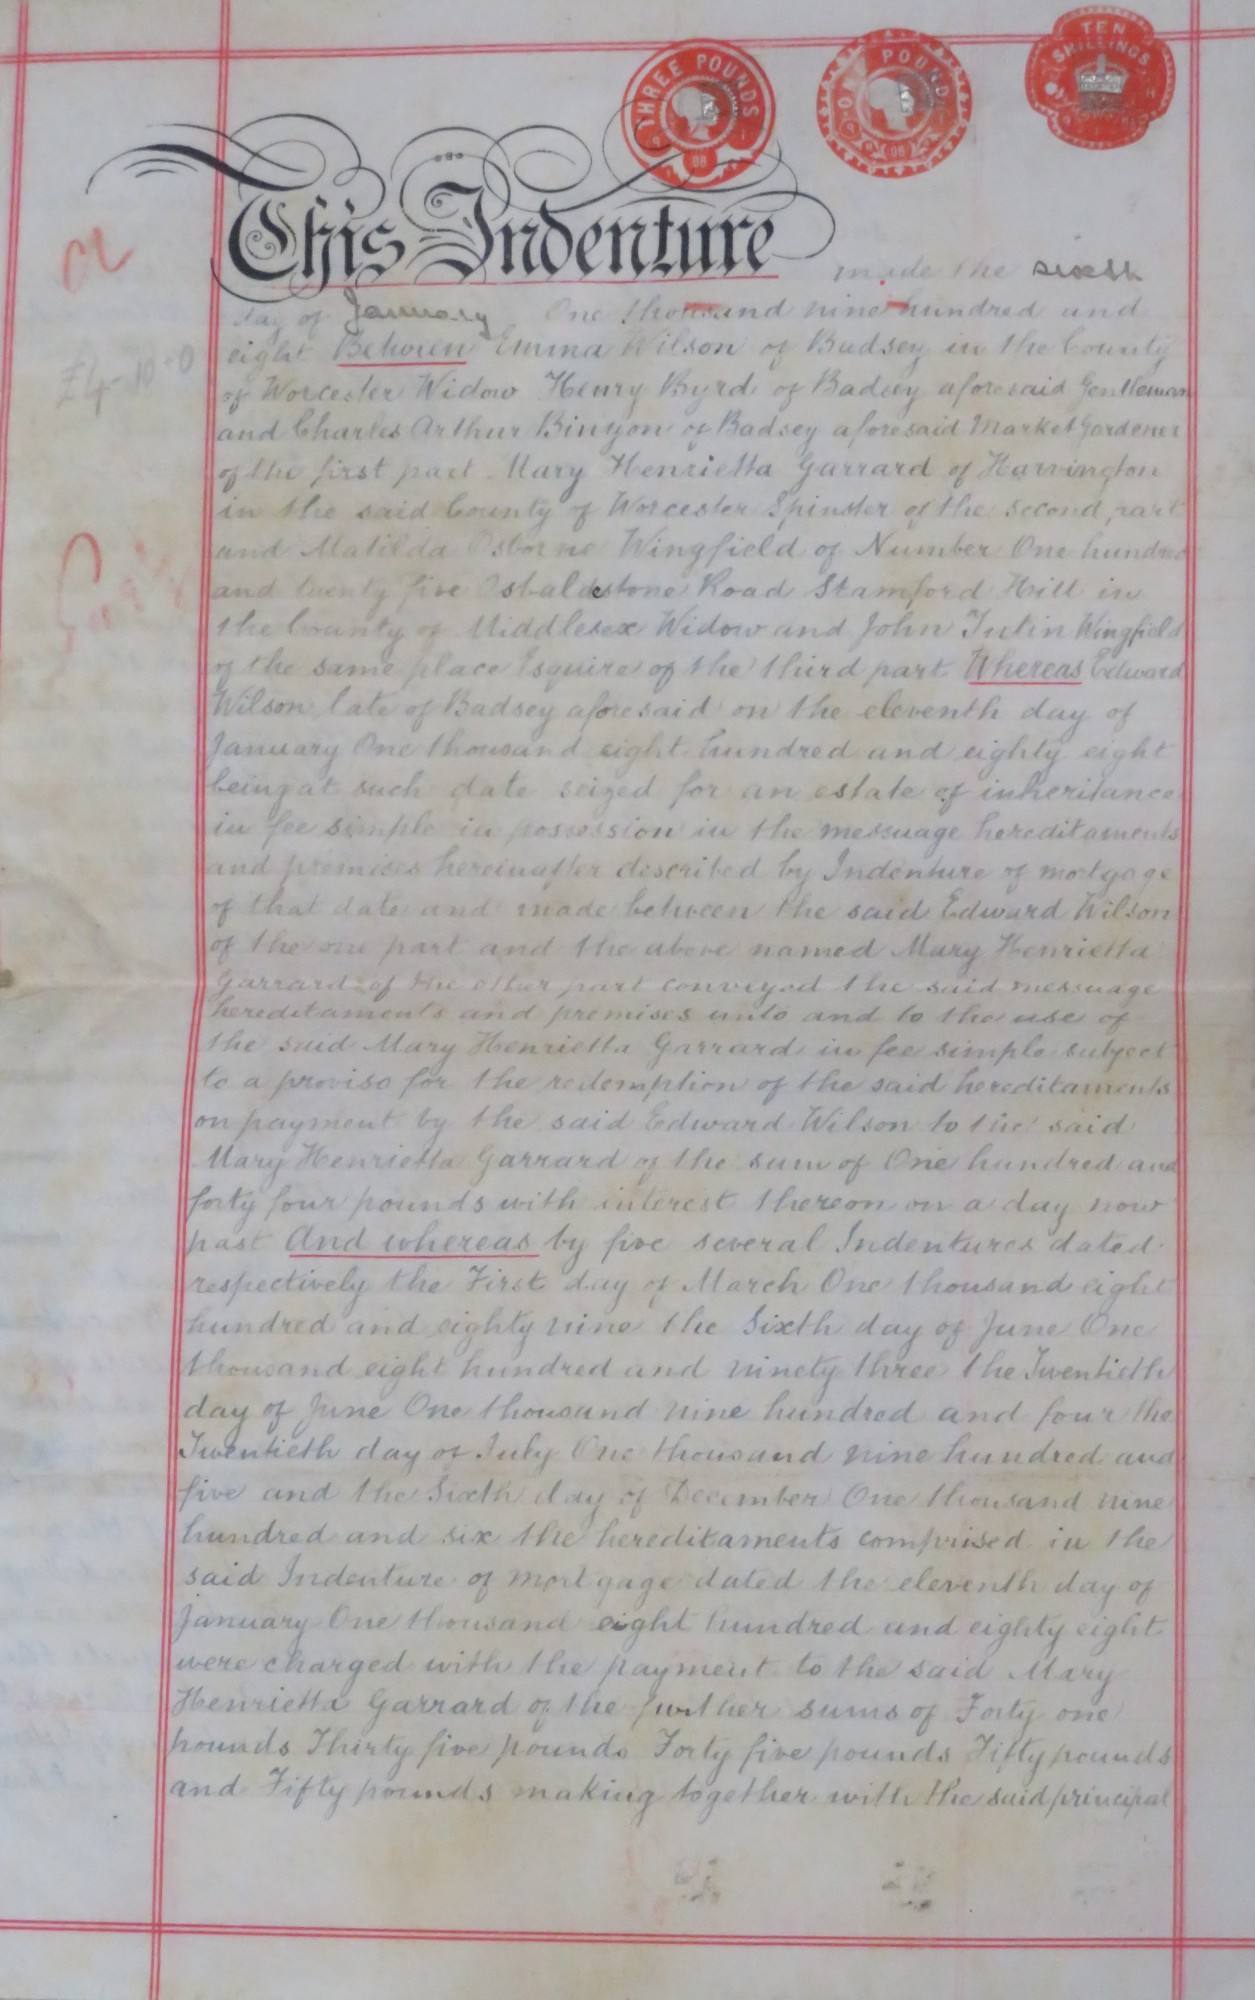 THREE POUNDS
ONE POUND
TEN SHILLINGS
This Indenture made the sixth
day of January One thousand nine hundred and
eight Between Emma Wilson of Badsey in the County
of Worcester Widow Henry Byrd of Badsey aforesaid Gentleman
and Charles Arthur Binyon of Badsey aforesaid Market Gardener
of the first part Mary Henrietta Garrard of Harvington
in the said County of Worcester Spinster of the second part
and Matilda Osborne Wingfield of Number One hundred
and twenty five Osbaldestone Road Stamford Hill in
the County of Middlesex Widow and John Wingfield
of the same place Esquire of the third part Whereas Edward
Wilson late of Badsey aforesaid on the eleventh day of
January One thousand eight hundred and eighty eight
being at such date seized for an estate of inheritance
in fee simple in possession in the messuage hereditaments
and premises hereinafter described by Indenture of mortgage
of that date and made between the said Edward Wilson
of the one part and the above named Mary Henrietta
Garrard of the other part conveyed the said messuage
hereditaments and premises unto and to the use of
the said Mary Henrietta Garrard in fee simple subject
to a proviso for the redemption of the said hereditaments
on payment by the said Edward Wilson to the said
Mary Henrietta Garrard of the sum of One hundred and
forty four pounds with interest thereon on a day now
past And whereas by five several Indentures dated
respectively the First day of March One thousand eight
hundred and eighty nine the Sixth day of June One
thousand eight hundred and ninety three the Twentieth
day of June One thousand nine hundred and four the
Twentieth day of July One thousand nine hundred and
five and the Sixth day of December One thousand nine
hundred and six the hereditaments comprised in the
said Indenture of mortgage dated the eleventh day of
January One thousand eight hundred and eighty eight
were charged with the payment to the said Mary
Henrietta Garrard of the further sums of Forty one
pounds Thirty five pounds Forty five pounds Fifty pounds
and Fifty pounds making together with the said principal
£4-10-0